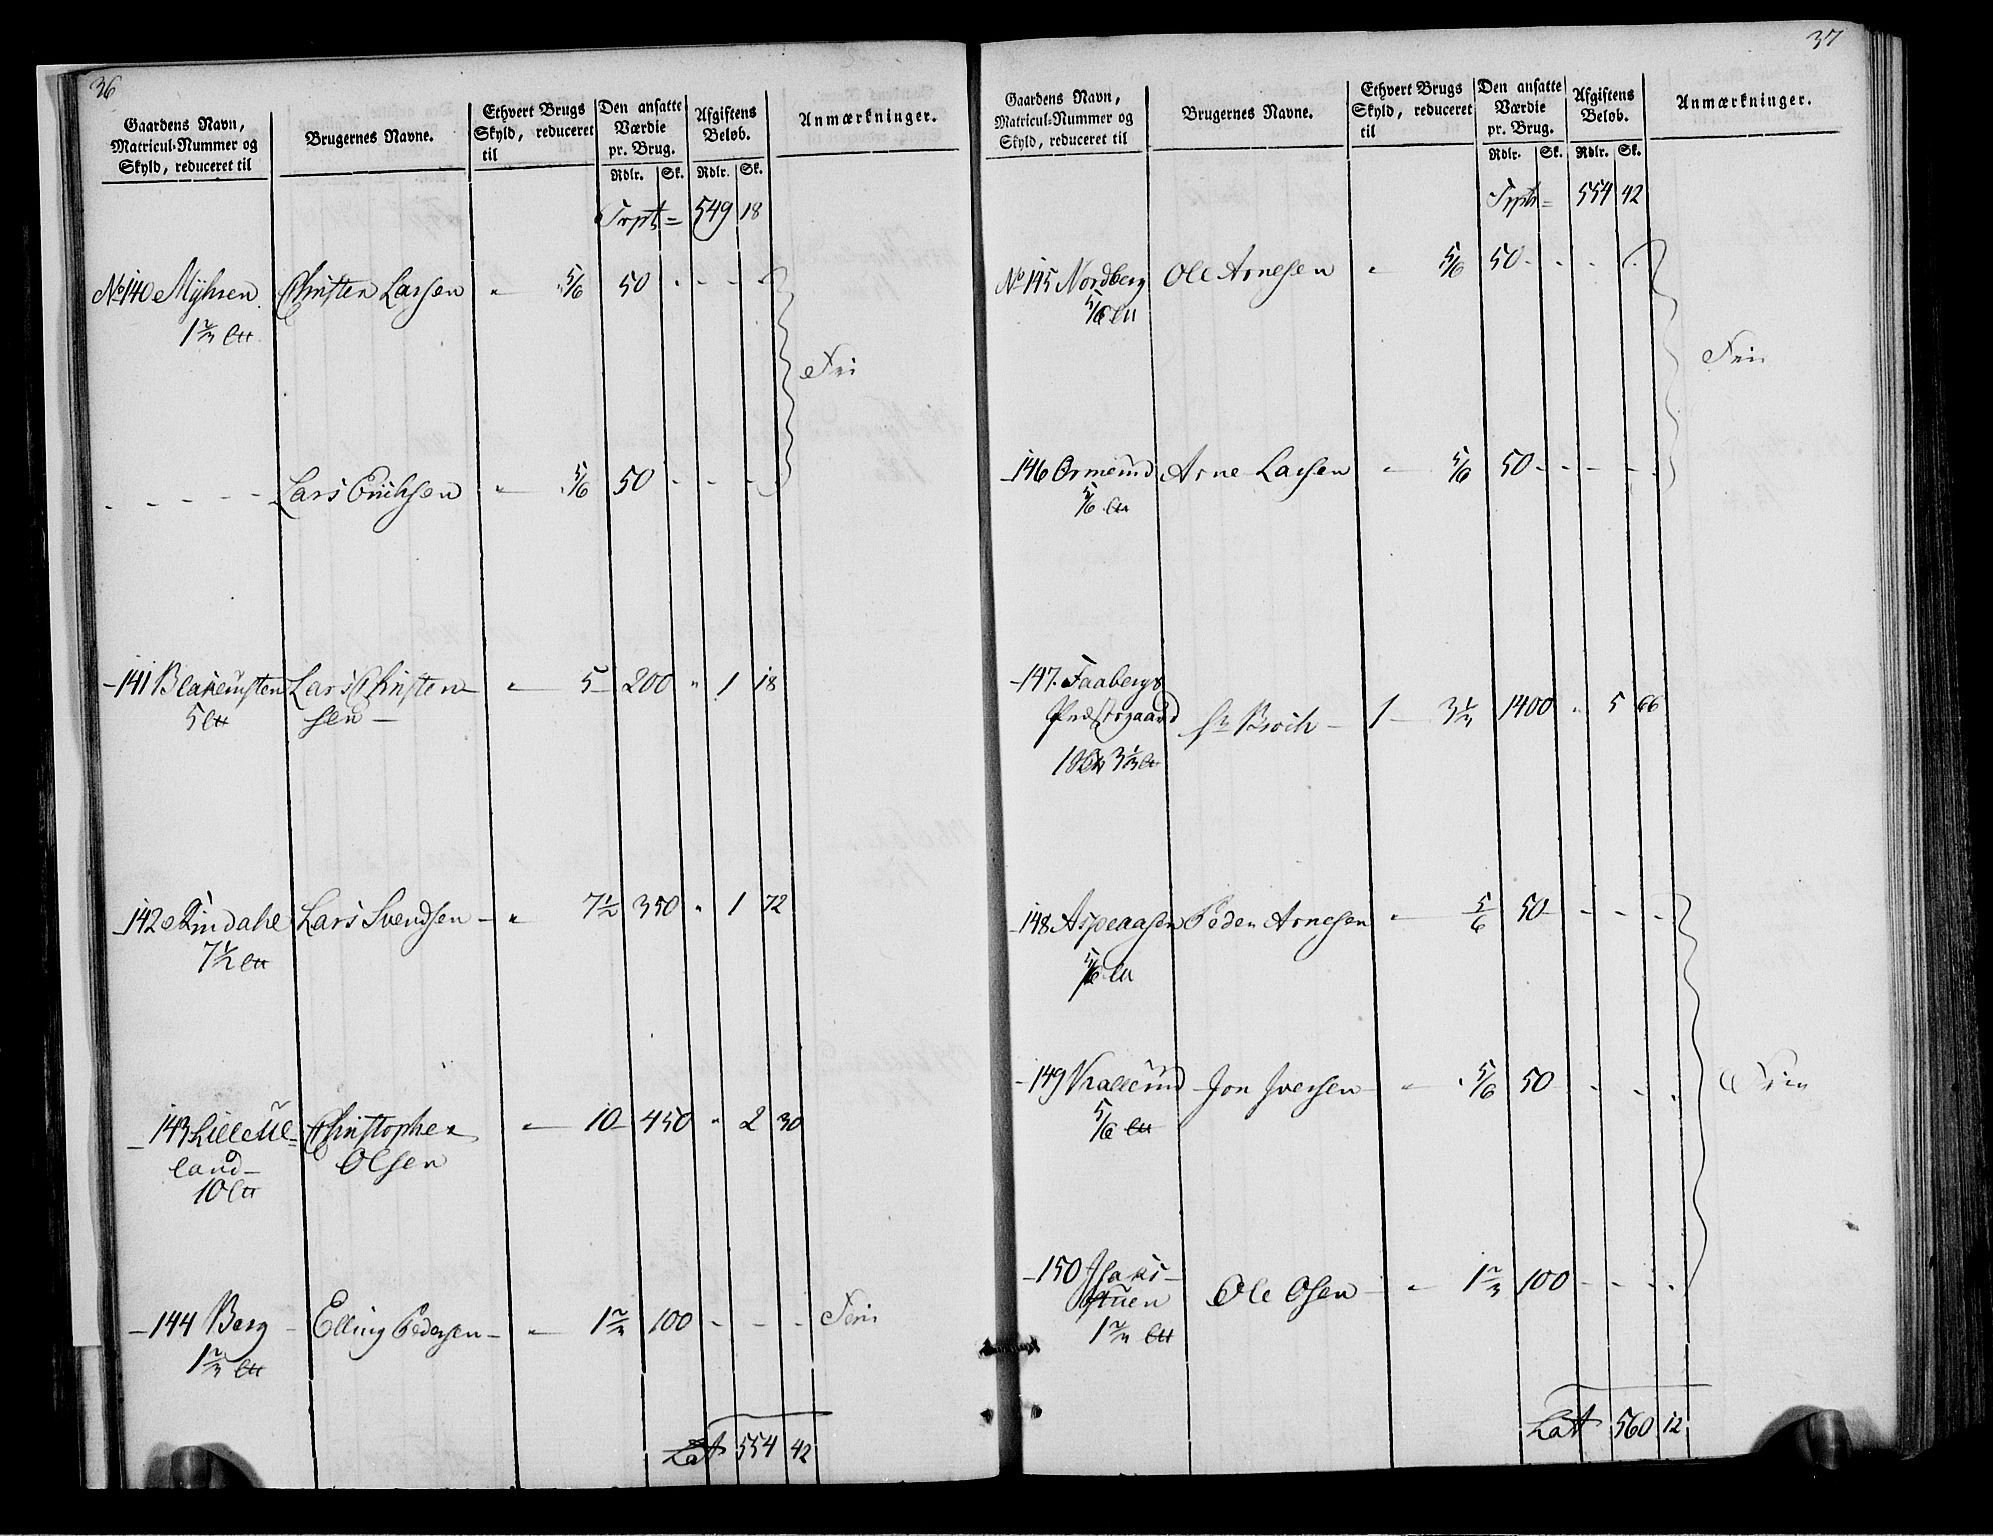 36
Gaardens Navn, Matricul-Nummer og Skyld, reduceret til | Brugernes Navne. | Ethvert Brugs Skyld, reduceret til | Den ansatte Værdie pr. Brug. Rdlr. Sk. | Afgiftens Beløb. Rdlr. Sk. | Anmærkninger.
Trpt = 549 18
No 140 Myhren Christen Larsen " 5/6 50 - - -
1 2/3 L℔
Fri
- - - - - Lars Erichsen " 5/6 50 - - -
- 141 Lars Christen- " 5 200 " 1 18
5 L℔ sen -
- 142 Rindahl Lars Svendsen - " 7½ 350 " 1 72
7½ L℔
- 143 Lille Ul- Christopher " 10 450 " 2 30
land - Olsen
10 L℔
- 144 Berg - Elling Pedersen - " 1 2/3 100 - - - Fri
1 2/3 L℔
Lat 554 42
37
Gaardens Navn, Matricul-Nummer og Skyld, reduceret til | Brugernes Navne. | Ethvert Brugs Skyld, reduceret til | Den ansatte Værdie pr. Brug. Rdlr. Sk. | Afgiftens Beløb. Rdlr. Sk. | Anmærkninger.
Trpt = 554 42
No 145 Nordberg Ole Arnesen " 5/6 50 - - -
5/6 L℔
Fri
- 146 Ormerud Arne Larsen " 5/6 50 - - - -
5/6 L℔
- 147. Faabergs
Præstegaard Hr Broch - 1 - 3 1/3 1400 " 5 66
3 1/3 L℔
- 148 Aspeaasen Peder Arnesen " 5/6 50 - - - -
5/6 L℔
- 149 Jon Iversen " 5/6 50 - - - Fri
5/6 L℔
- 150 Isaks-
stuen Ole Olsen - " 1 2/3 100 - - - -
1 2/3 L℔
Lat 560 12